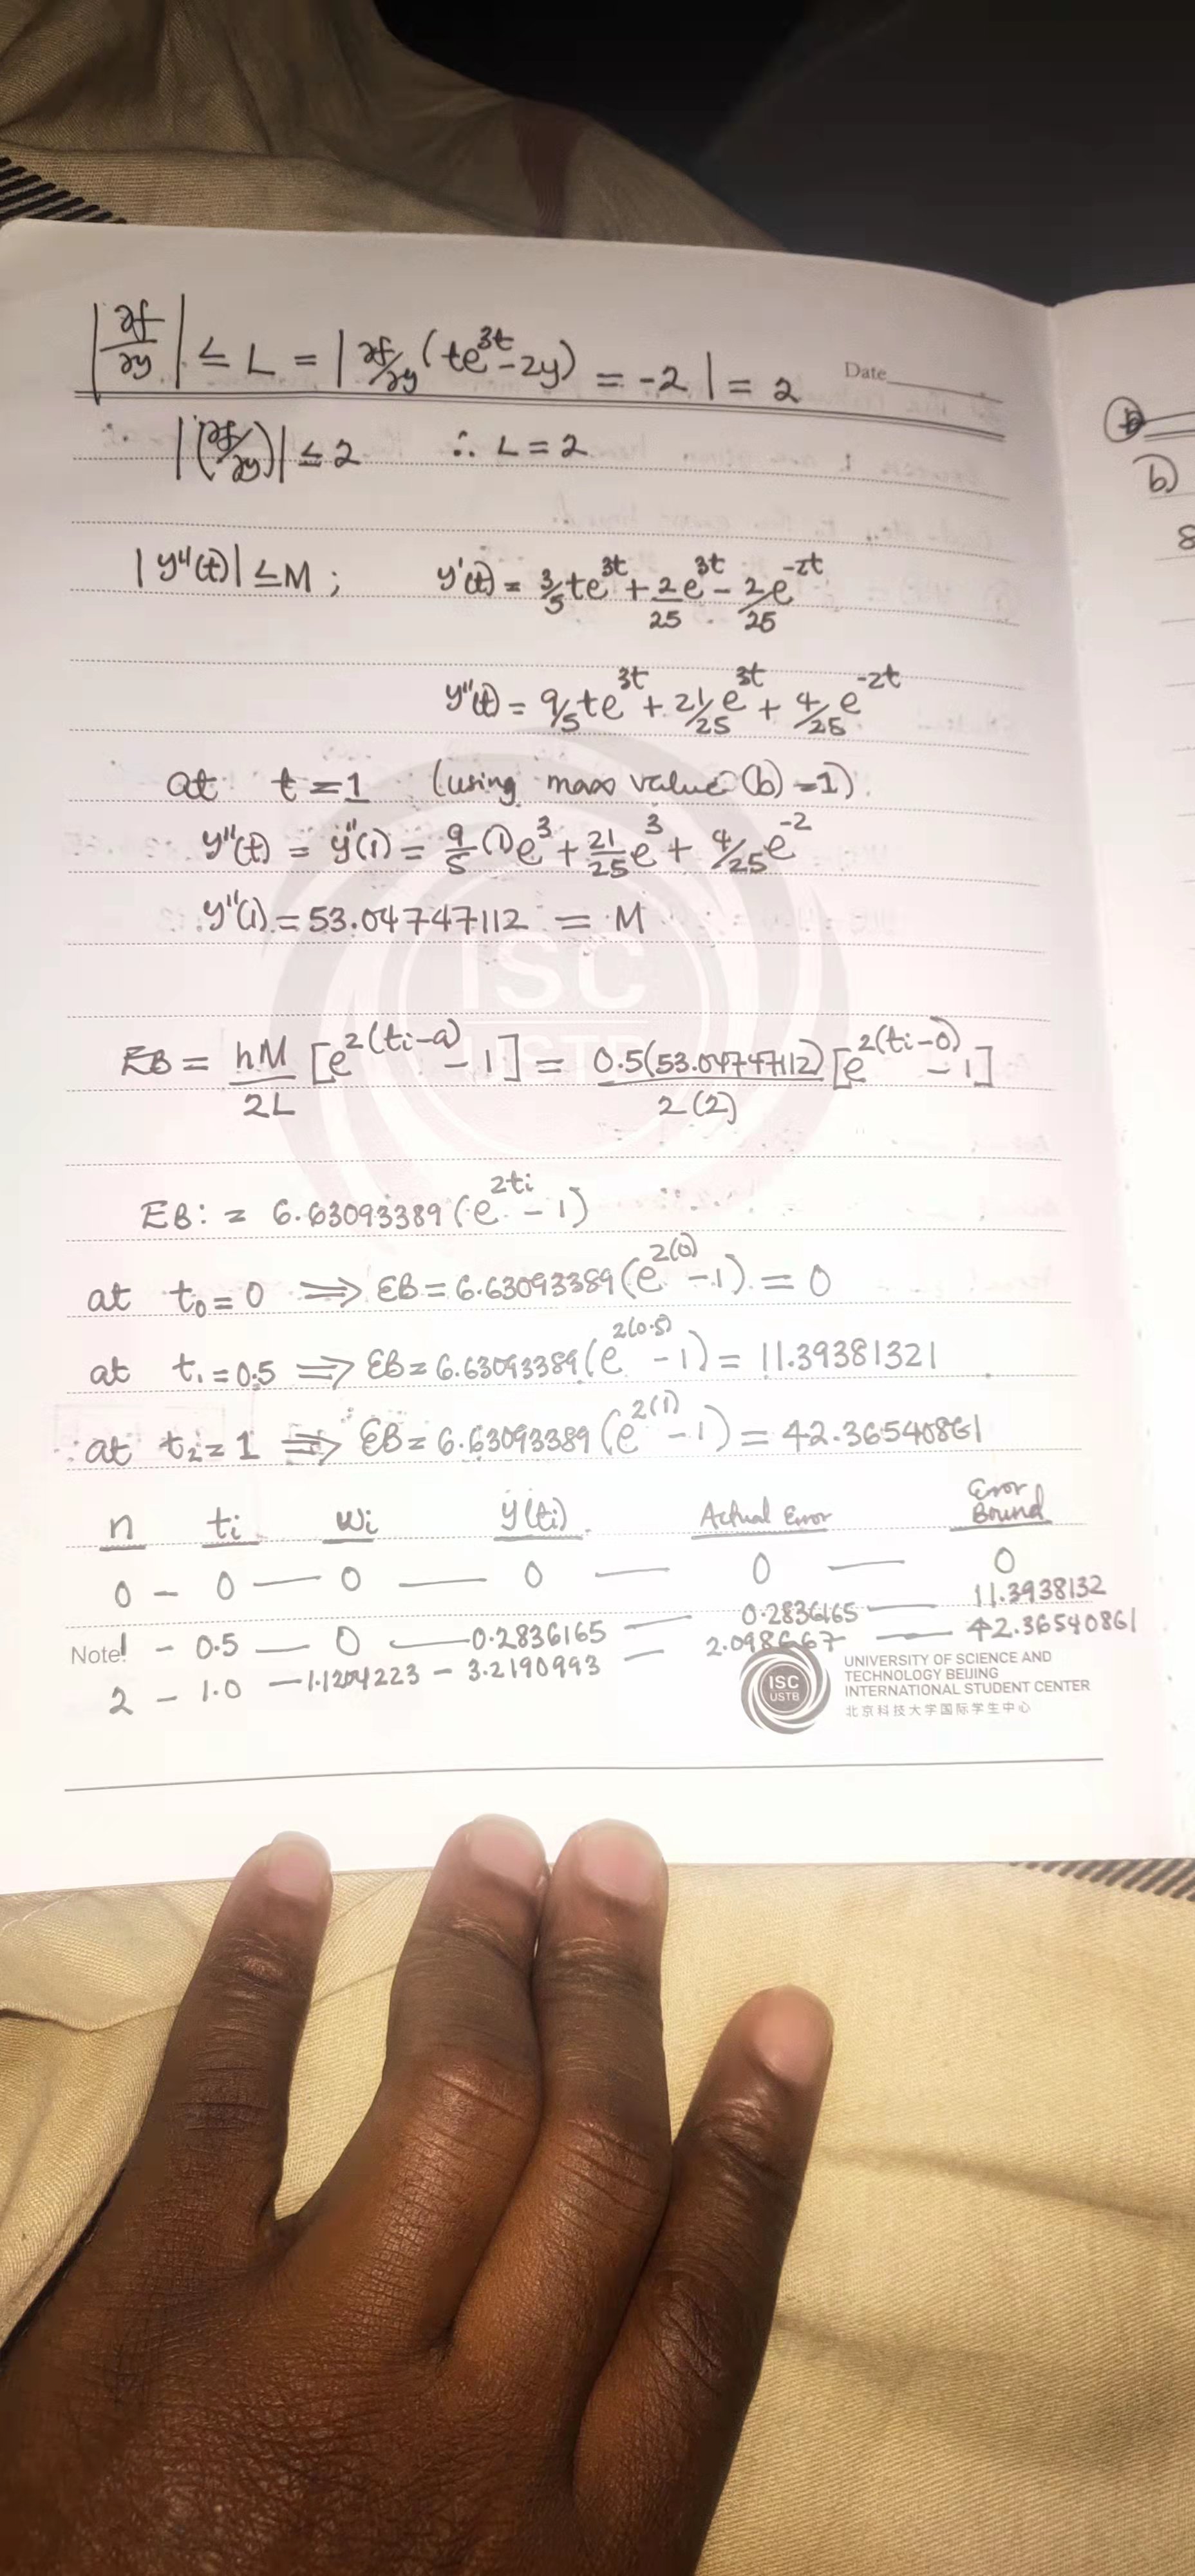 |∂f/∂y| ≤ L = |∂f/∂y (te^3t - 2y) = -2| = 2
Date
|(∂f/∂y)| ≤ 2 ∴ L = 2
|y"(t)| ≤ M ; y'(t) = 3/5 te^3t + 2/25 e^3t - 2/25 e^-2t
y"(t) = 9/5 te^3t + 21/25 e^3t + 4/25 e^-2t
at t = 1 (using max value (b) = 1).
y"(t) = y"(1) = 9/5 (1)e^3 + 21/25 e^3 + 4/25 e^-2
y"(1) = 53.04747112 = M
EB = hM/2L [e^2(ti-a) - 1] = 0.5(53.04747112)/2(2) [e^2(ti-0) - 1]
EB: = 6.63093389 (e^2ti - 1)
at t₀ = 0 ⇒ EB = 6.63093389 (e^2(0) - 1) = 0
at t₁ = 0.5 ⇒ EB = 6.63093389 (e^2(0.5) - 1) = 11.39381321
at t₂ = 1 ⇒ EB = 6.63093389 (e^2(1) - 1) = 42.36540861
n ti wi y(ti) Actual Error Error Bound
0 - 0 — 0 — 0 — 0 — 0
1 - 0.5 — 0 — 0.2836165 — 0.2836165 — 11.3938132
2 - 1.0 — 1.1204223 - 3.2190993 — 2.098667 — 42.36540861
Note!
ISC
USTB
UNIVERSITY OF SCIENCE AND
TECHNOLOGY BEIJING
INTERNATIONAL STUDENT CENTER
北京科技大学国际学生中心
b)
8